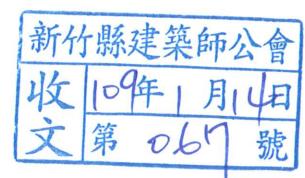 新竹縣建築師公會
收文
109年1月14日
第 067 號